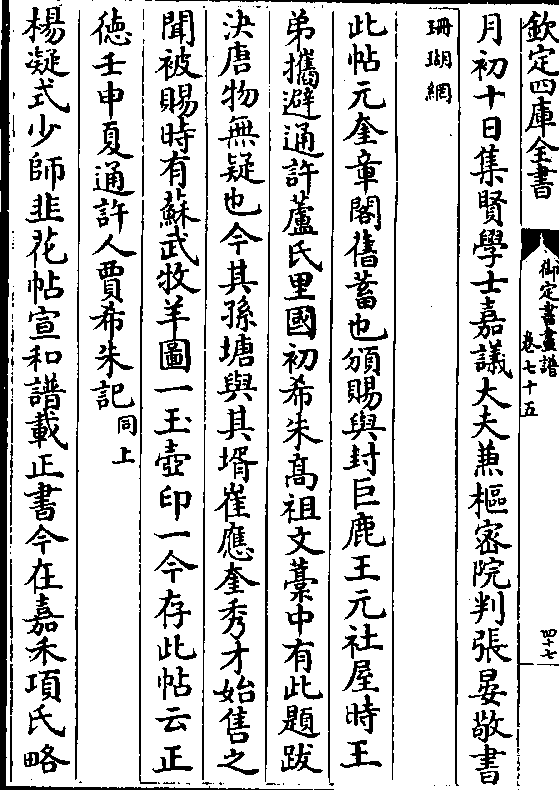 欽定四庫全書
御定書畫譜
卷七十五
四十七
月初十日集賢學士嘉議大夫兼樞密院判張晏敬書
珊瑚網
此帖元奎章閣舊蓄也頒賜與封巨鹿王元社屋時王
弟攜避通許蘆氏里國初希朱高祖文藁中有此題跋
決唐物無疑也今其孫塘與其壻崔應奎秀才始售之
聞被賜時有蘇武牧羊圖一玉壺印一今存此帖云正
徳壬申夏通許人賈希朱記同上
楊凝式少師韭花帖宣和譜載正書今在嘉禾項氏略